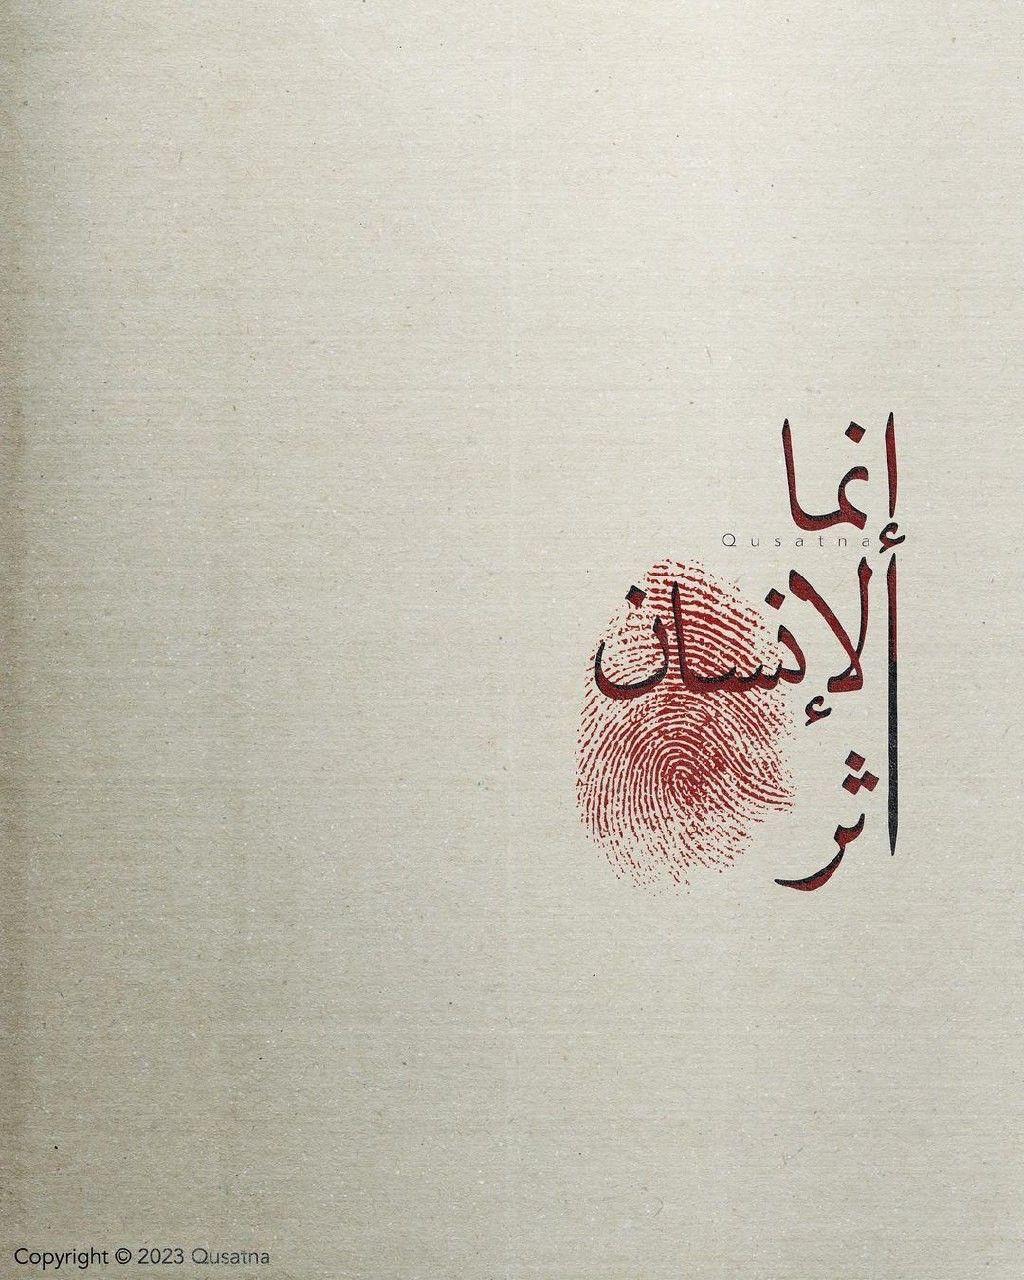 انما
Qusatna
الإنسان
أثر
Copyright © 2023 Qusatna